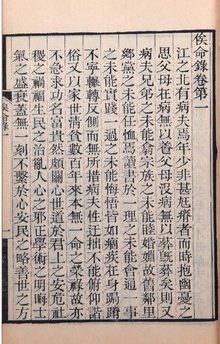 俟命錄卷第一
江之北有病夫焉年少非甚尪瘠者而時抱幽憂之
思父母在病無以養父母沒病無以葬旣葬矣則又
病夫兄弟之未能翕宗族之未能睦婚姻故舊鄰里
鄉黨之未能任恤焉讀書於一理之未能會通一事
之未能實踐一過之未能悔悟皆如疾在身
不寧輾轉反側而無所措病夫性迂拙不能俯仰諧
俗又以家世清貧數百年來本無一命之榮祿故亦
不急求功名富貴然頗關心世道於君上之安危社
稷之禍福生民之治亂人心之邪正學術之明晦士
氣之盛衰蓋無一刻不繫於心安民之略善世之方
俟命錄